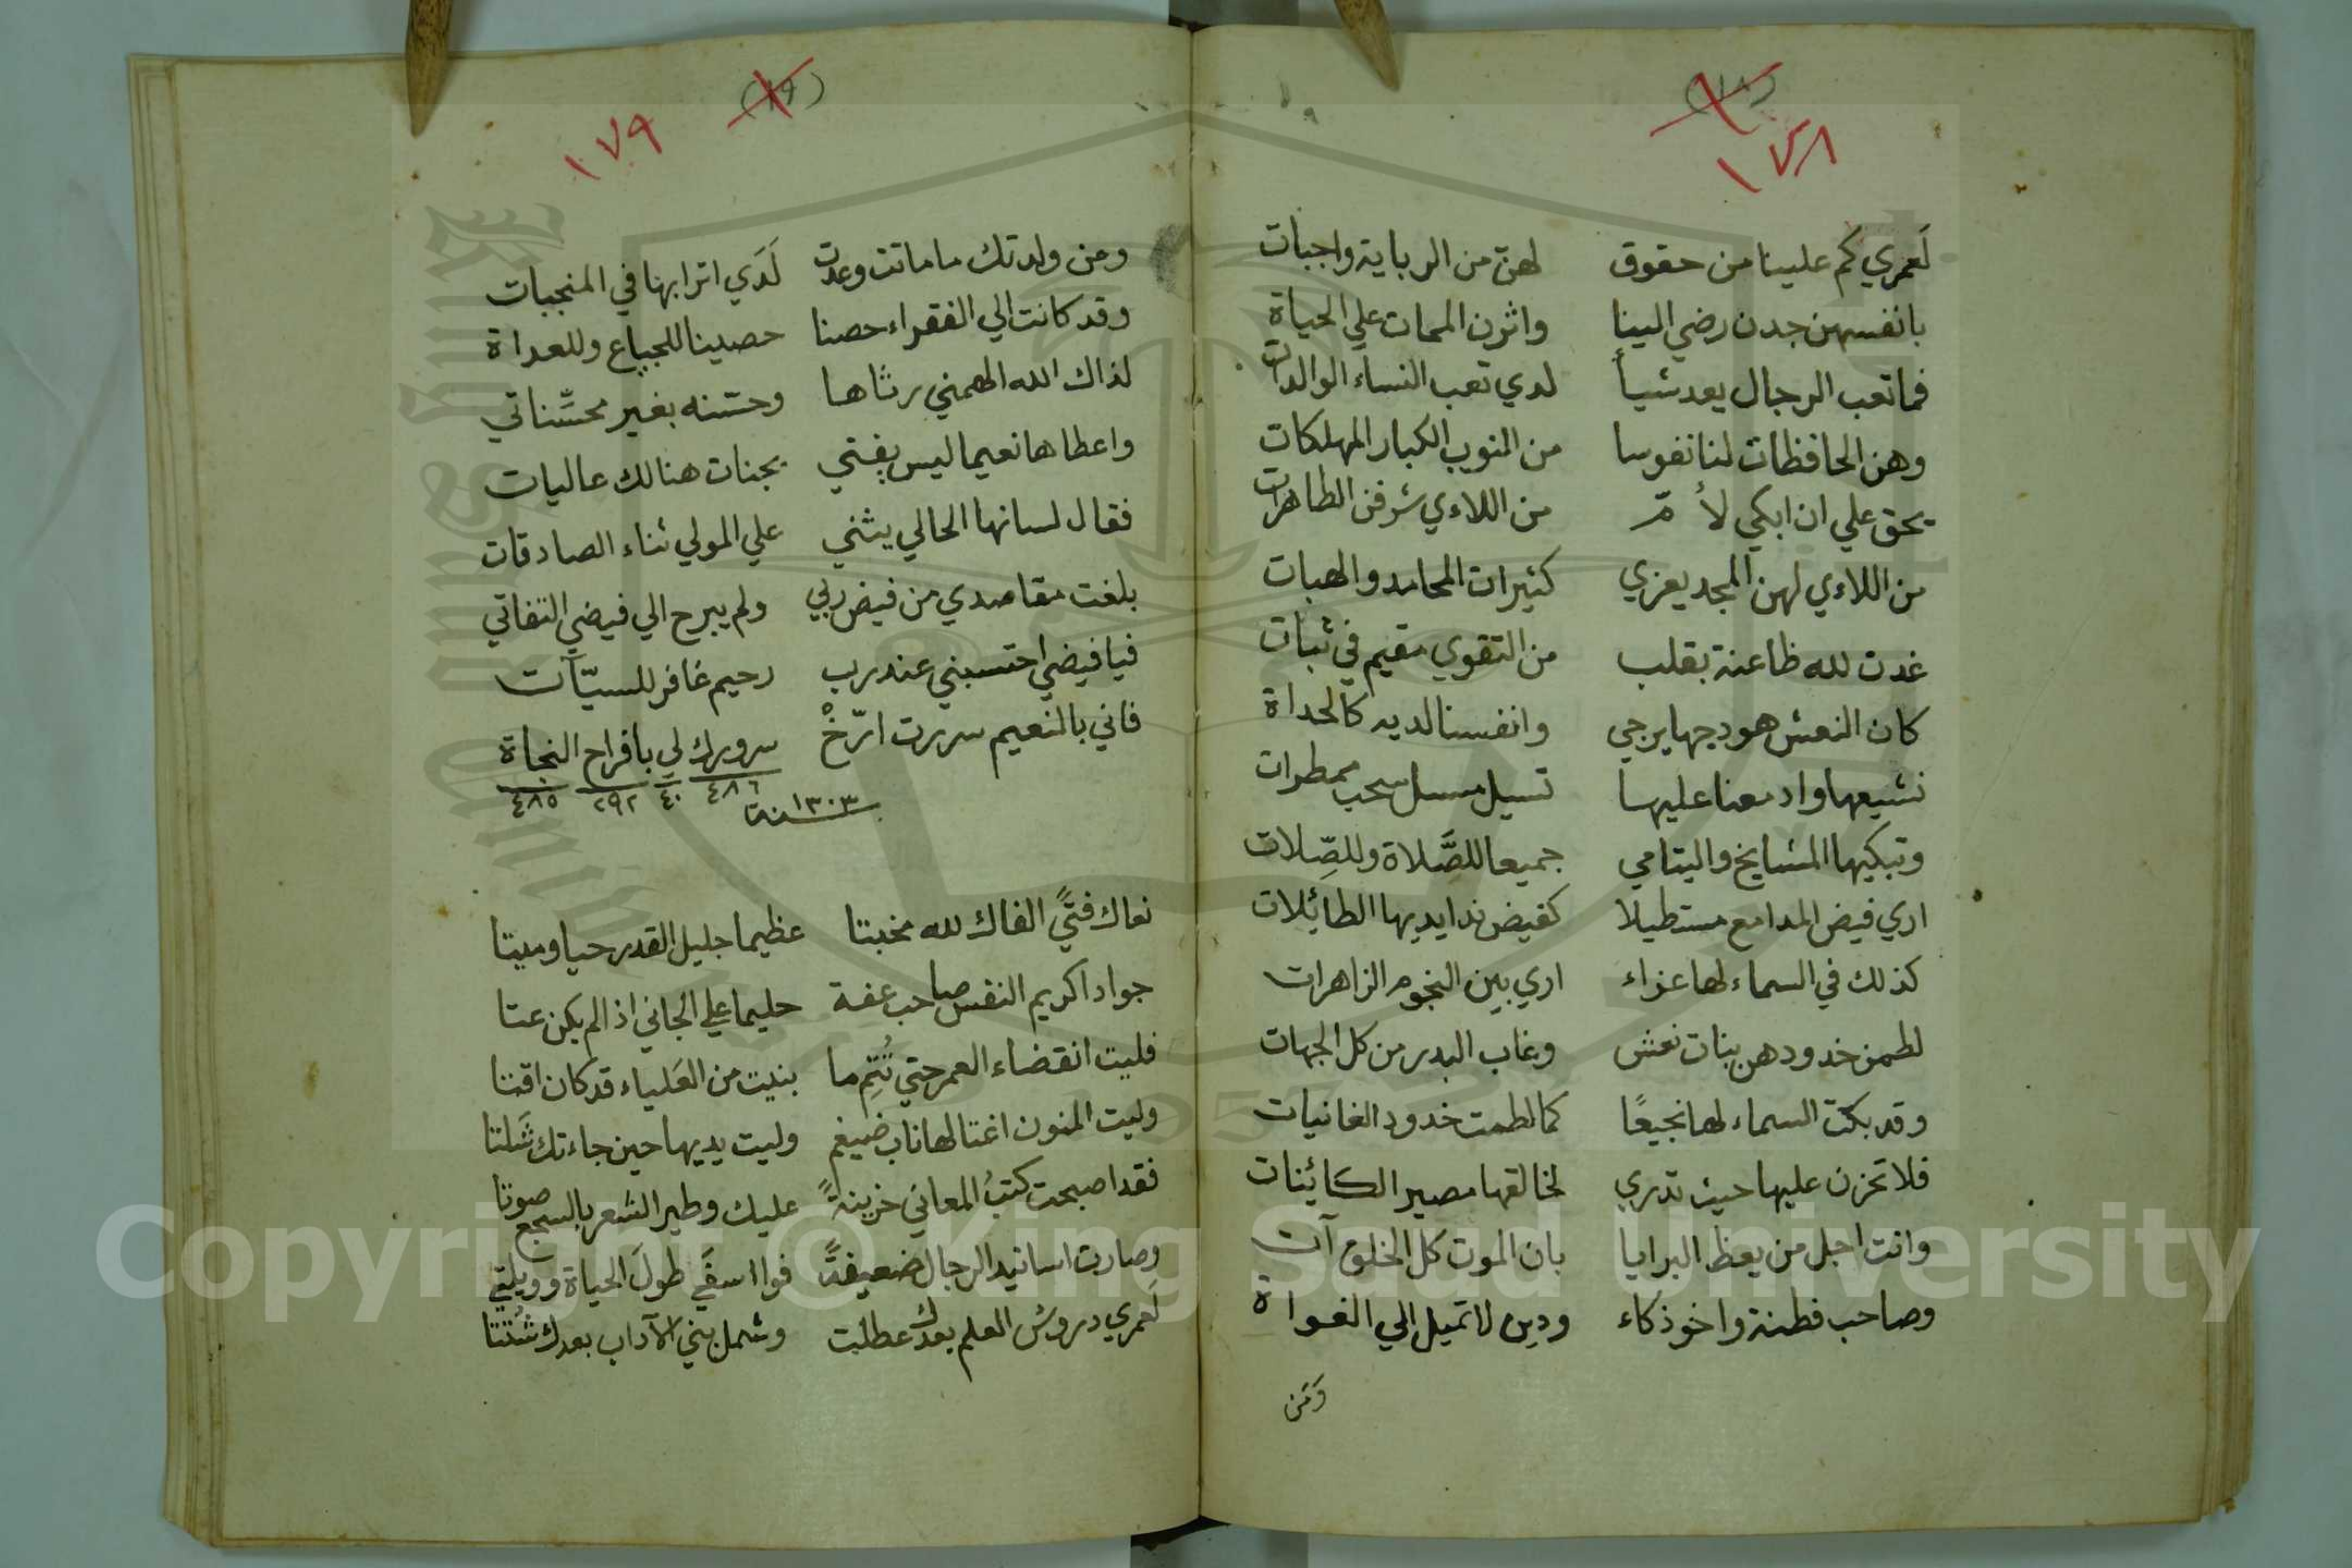 (١٨)
١٧٨
لَعمري كم علينا من حقوق لهن من الرباية واجبات
بانفسهن جدن رضي الينا واثرن الممات علي الحياة
فما تعب الرجال يعد شيأ لدي تعب النساء الوالدات
وهن الحافظات لنا نفوسا من النوب الكبار المهلكات
يحق علي ان ابكي لأمّ من اللاءي شرفن الطاهرات
من اللاءي لهن المجد يعزي كثيرات المحامد والهبات
غدت لله ظاعنة بقلب من التقوي مقيم في ثبات
كان النعش هودجها يرجي وانفسنا لديه كالحداة
نشيعها وادمعنا عليها تسيل مسيل سحب ممطرات
وتبكيها المشايخ واليتامي جميعا للصَّلاة وللصِّلات
اري فيض المدامع مستطيلا كفيض ندا يديها الطائلات
كذلك في السماء لها عزاء اري بين النجوم الزاهرات
لطمن خدودهن بنات نعش وغاب البدر من كل الجهات
وقد بكت السماء لها نجيعًا كما لطمت خدود الغانيات
فلا تحزن عليها حيث تدري لخالقها مصير الكائنات
وانت اجل من يعظ البرايا بان الموت كل الخلق آت
وصاحب فطنة واخو ذكاء ودين لا تميل الي الغواة
وَمَن
(١٩)
١٧٩
ومن ولدتك ما ماتت وعدت لَدَي اترابها في المنجبات
وقد كانت الي الفقراء حصنا حصينا للجياع وللعداة
لذاك الله الهمني رثاها وحسنه بغير محسِّناتي
واعطاها نعيما ليس يفني بجنات هنالك عاليات
فقال لسانها الحالي يثني علي المولي ثناء الصادقات
بلغت مقاصدي من فيض ربي ولم يبرح الي فيضي التفاتي
فيا فيضي احتسبني عند رب رحيم غافر للسيّآت
فاني بالنعيم سررت ارّخْ سرورك لي بافراح النجاة
٤٨٦ ٤٠ ٢٩٢ ٤٨٥
سنة ١٣٠٣
نعاك فتًي الفاك لله مخبتا عظيما جليل القدر حيا وميتا
جوادا كريم النفس صاحب عفة حليما علي الجاني اذا لم يكن عتا
فليت انقضاء العمر حتي تُتِم ما بنيت من العَلياء قد كان اقتا
وليت المنون اغتالها ناب ضيغم وليت يديها حين جاءتك شَلتا
فقد اصبحت كتبُ المعاني حزينةً عليك وطير الشعر بالسجع صوتا
وصارت اسانيد الرجال ضعيفةً فوا اسفَي طولَ الحياة وويلتي
لَعمري دروش العلم بعدك عطلت وشمل بني الآداب بعدك شُتتا
Copyright © King Saud University